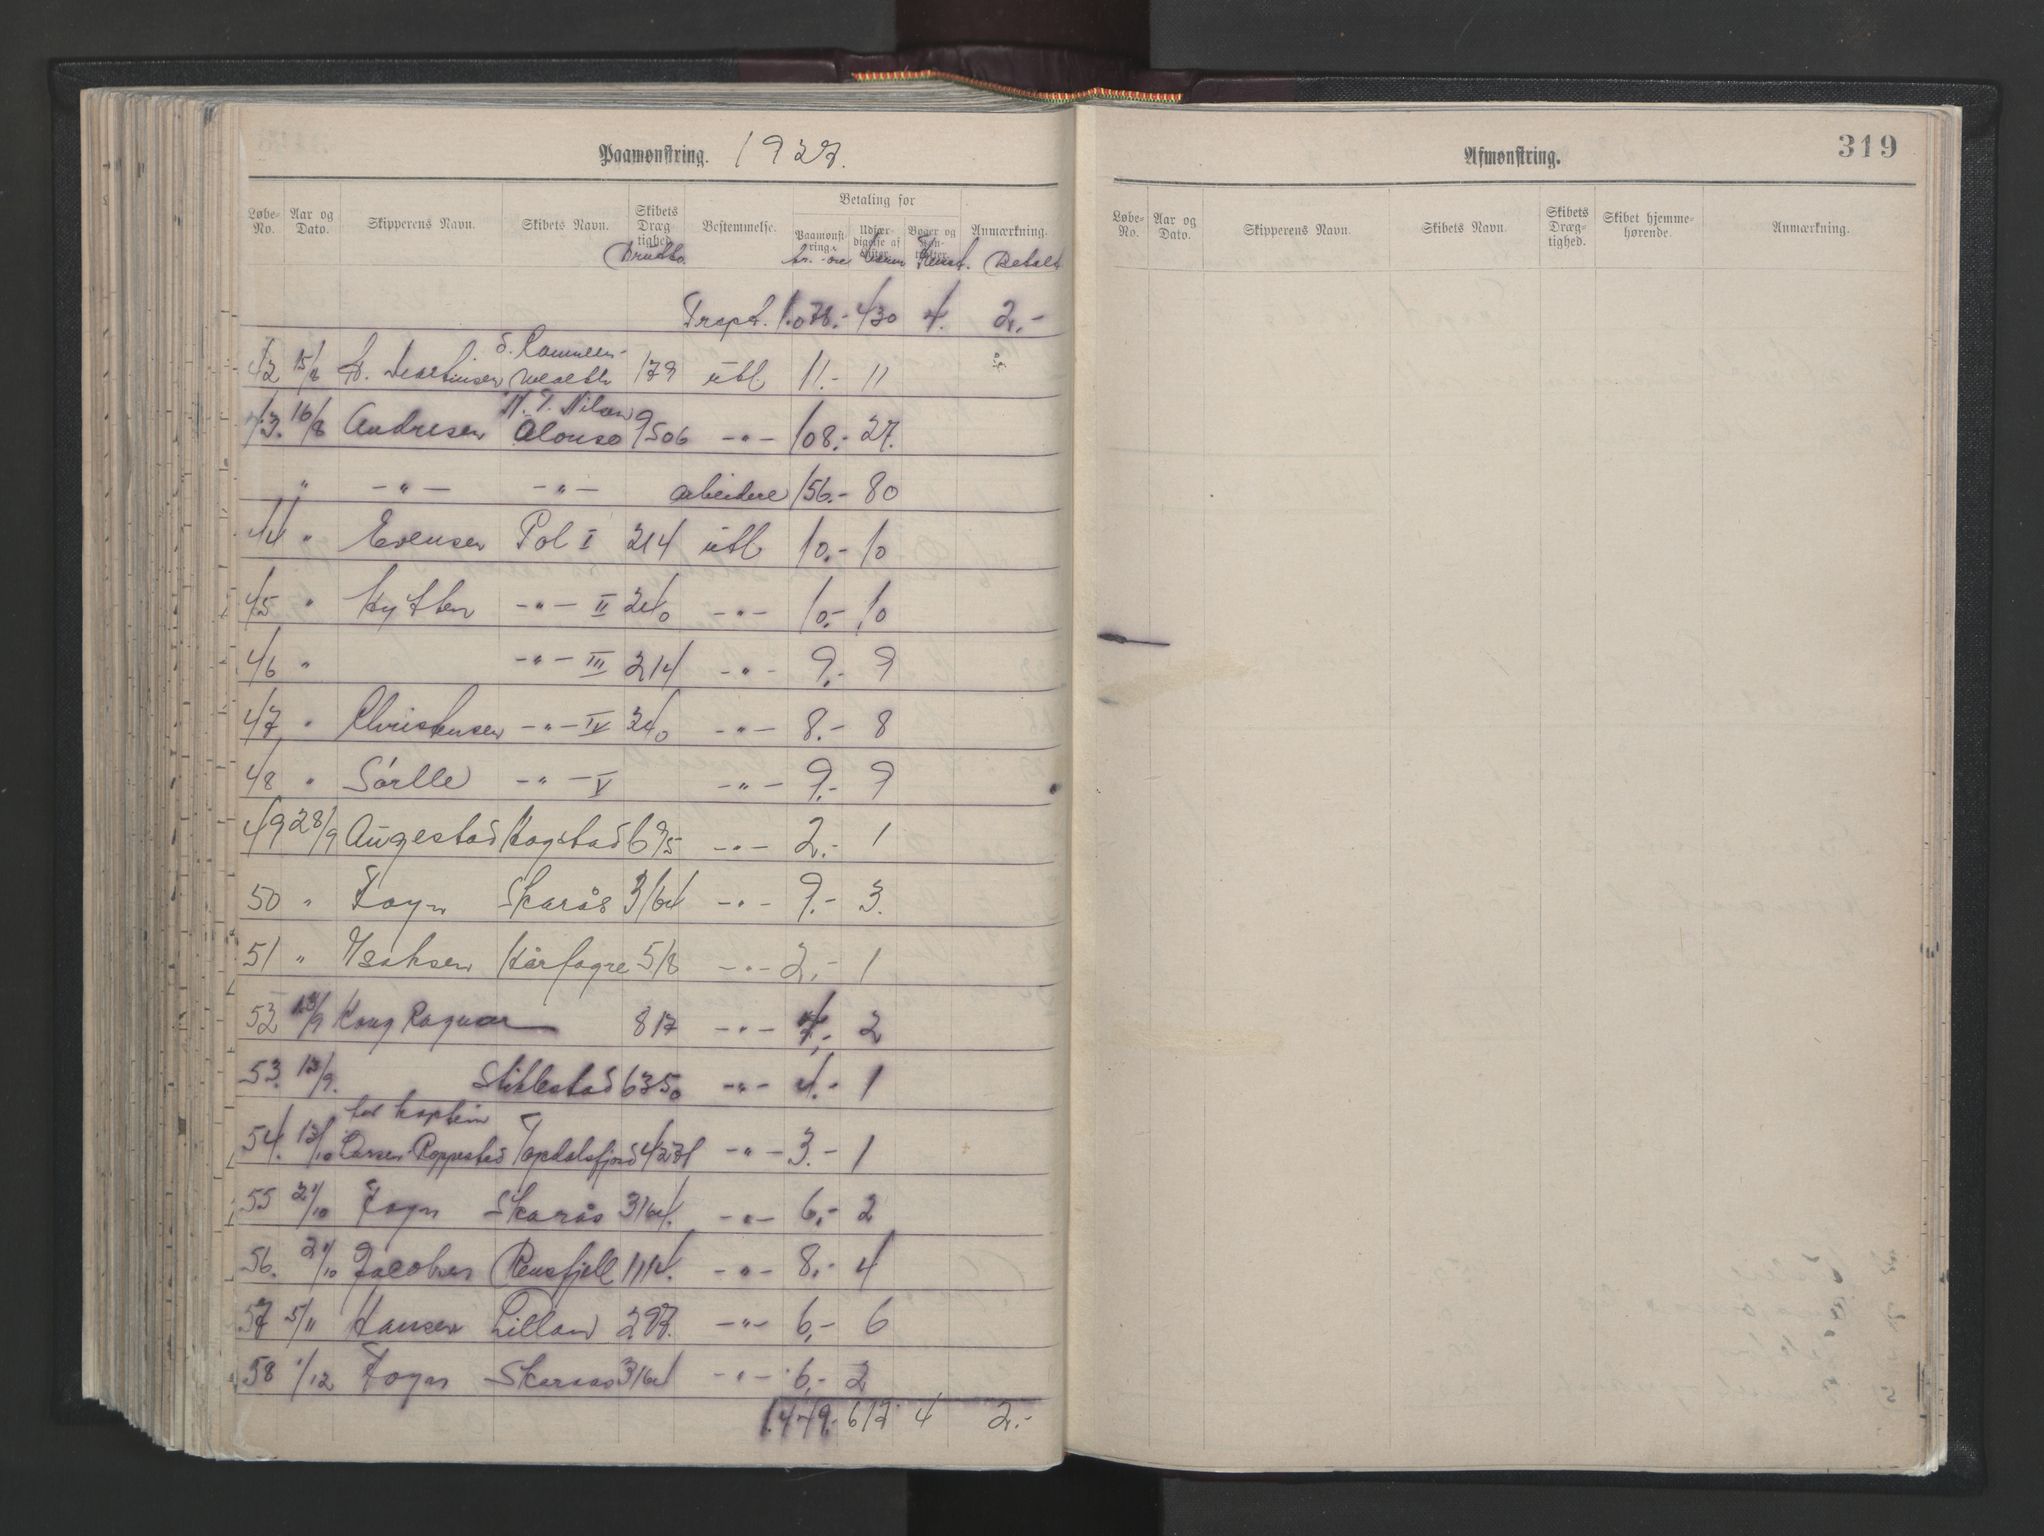 Paamonstring. 1927.
Løbe-No. Aar og Dato. Skipperens Navn. Skibets Navn. Skibets Dræg-tighed. Bestemmelse. Betaling for Paamonst-ring. Udfær-digelse af Bøger og Anmærkning.
Brutto kr. øre Betalt
Trspt. 1.078.- 430 4. 2,-
42 15/8 Martinsen 179 utl 11.- 11
N. T. Nielsen
43. 16/8 Andresen Alonso 9506 -"- 108.- 27.
" -"- -"- arbeidere 156.- 80
44 " Evensen Pol I 214 utl 10.- 10
45 " Hytten -"- II 240 -"- 10.- 10
46 " -"- III 214 -"- 9.- 9
47 " Christensen -"- IV 240 -"- 8.- 8
48 " Sörlle -"- V -"- 9.- 9
49 28/9 Augestad Hogstad 695 -"- 2.- 1
50 " Foyn Skarås 3164 -"- 9.- 3.
51 " Isaksen Hårfagre 518 -"- 2,- 1
52 13/9 Kong Ragnar 817 -"- 7,- 2
53. 13/9. Stiklestad 6350 -"- 4.- 1
54. 13/10 Larsen Roppestad Topdalsfjord 4271 -"- 3.- 1
55 21/10 Foyn Skarås 3164. -"- 6,- 2
56. 21/10 Jacobsen Rensfjell 1114. -"- 8,- 4
57 5/11 Hansen Lillan 297. -"- 6,- 6
58 1/12 Foyn Skaraas 3164 -"- 6,- 2
1.479.- 617 4 2.-
Afmonstring. 319
Løbe-No. Aar og Dato. Skipperens Navn. Skibets Navn. Skibets Dræg-tighed. Skibet hjemme-hørende. Anmærkning.